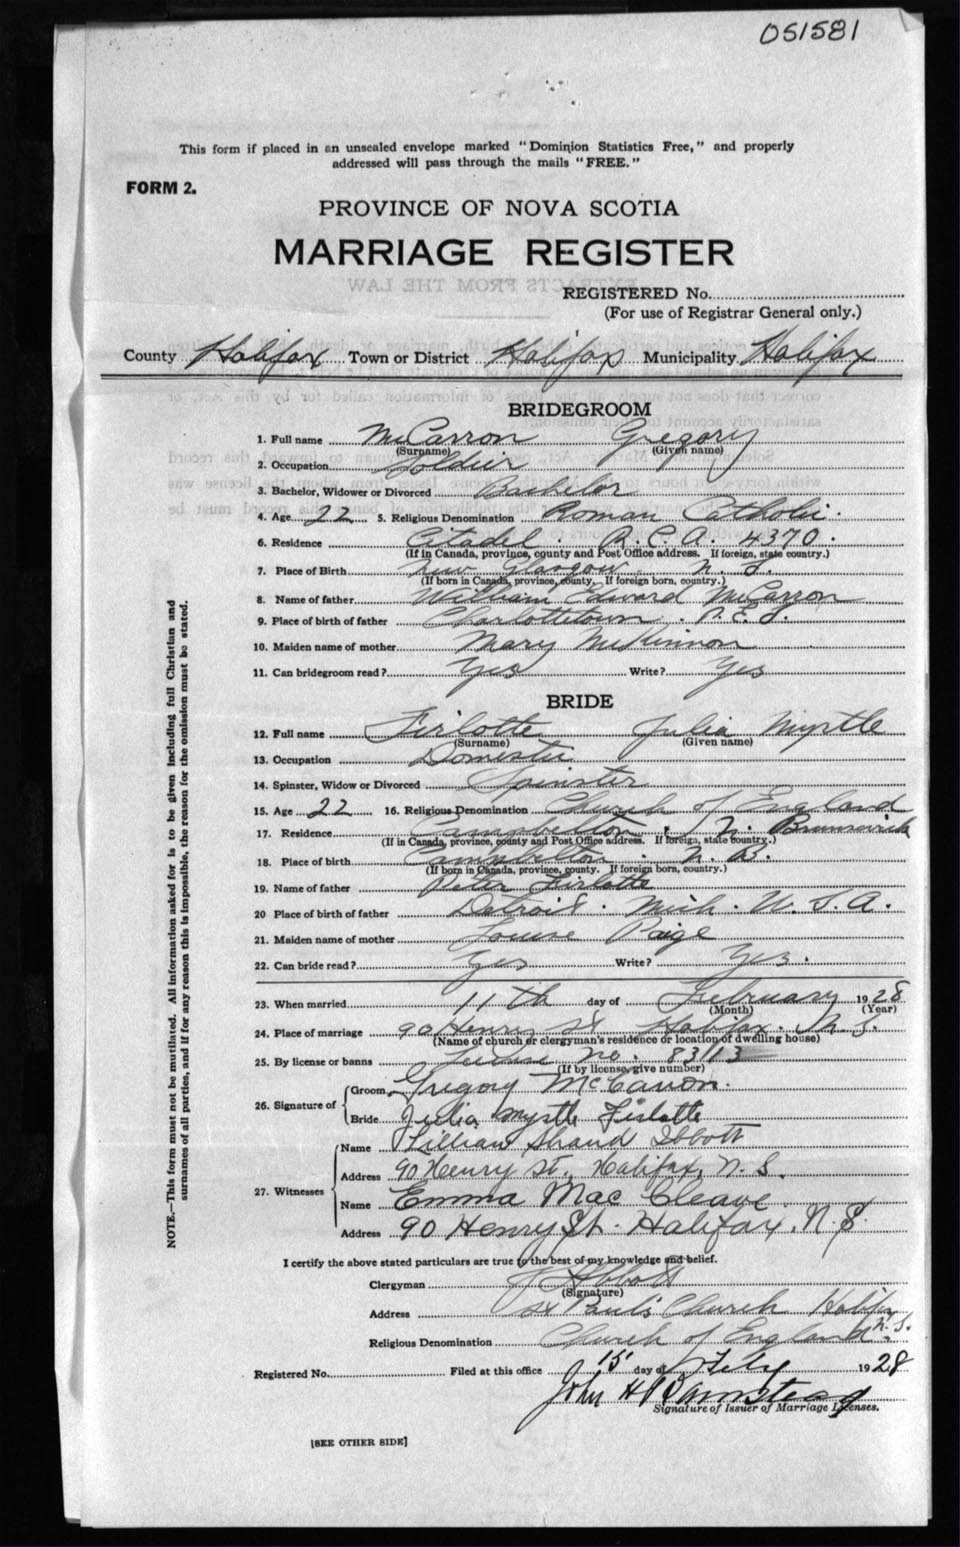 051581
This form if placed in an unsealed envelope marked "Dominion Statistics Free," and properly
addressed will pass through the mails "FREE."
FORM 2.
PROVINCE OF NOVA SCOTIA
MARRIAGE REGISTER
REGISTERED No.
(For use of Registrar General only.)
County Halifax Town or District Halifax Municipality. Halifax
BRIDEGROOM
1. Full name McCarron Gregory
(Surname) (Given name)
2. Occupation Soldier
3. Bachelor, Widower or Divorced Bachelor
4. Age 22 5. Religious Denomination Roman Catholic.
6. Residence Citadel R.C.A. 4370.
(If in Canada, province, county and Post Office address. If foreign, state country.)
7. Place of Birth New Glasgow N.S.
(If born in Canada, province, county. If foreign born, country.)
8. Name of father William Edward McCarron
9. Place of birth of father Charlottetown. P.E.I.
10. Maiden name of mother Mary McKinnon
11. Can bridegroom read? Yes Write? Yes
BRIDE
12. Full name Firlotte Julia Myrtle
(Surname) (Given name)
13. Occupation Domestic
14. Spinster, Widow or Divorced Spinster
15. Age 22 16. Religious Denomination Church of England
17. Residence Campbelton. N. Brunswick
(If in Canada, province, county and Post Office address. If foreign, state country.)
18. Place of birth Campbelton. N.B.
(If born in Canada, province, county. If foreign born, country.)
19. Name of father Peter Firlotte
20 Place of birth of father Detroit. Mich. U.S.A.
21. Maiden name of mother Louise Paige
22. Can bride read? Yes Write? Yes.
23. When married 11th day of February 1928
(Month) (Year)
24. Place of marriage 90 Henry St Halifax. N.S.
(Name of church or clergyman's residence or location of dwelling house)
25. By license or banns License No. 83113
(If by license, give number)
26. Signature of
Groom Gregory McCarron.
Bride Julia Myrtle Firlotte
27. Witnesses
Name Lillian Ibbott
Address 90 Henry St. Halifax, N.S.
Name Emma MacCleave
Address 90 Henry St. Halifax. N.S.
I certify the above stated particulars are true to the best of my knowledge and belief.
Clergyman Ibbott
(Signature)
Address St Paul's Church Halifax N.S.
Religious Denomination Church of England
Registered No. Filed at this office 15 day of Feby 1928
John H Barnstead
Signature of Issuer of Marriage Licenses.
[SEE OTHER SIDE]
NOTE.—This form must not be mutilated. All information asked for is to be given including full Christian and
surnames of all parties, and if for any reason this is impossible, the reason for the omission must be stated.